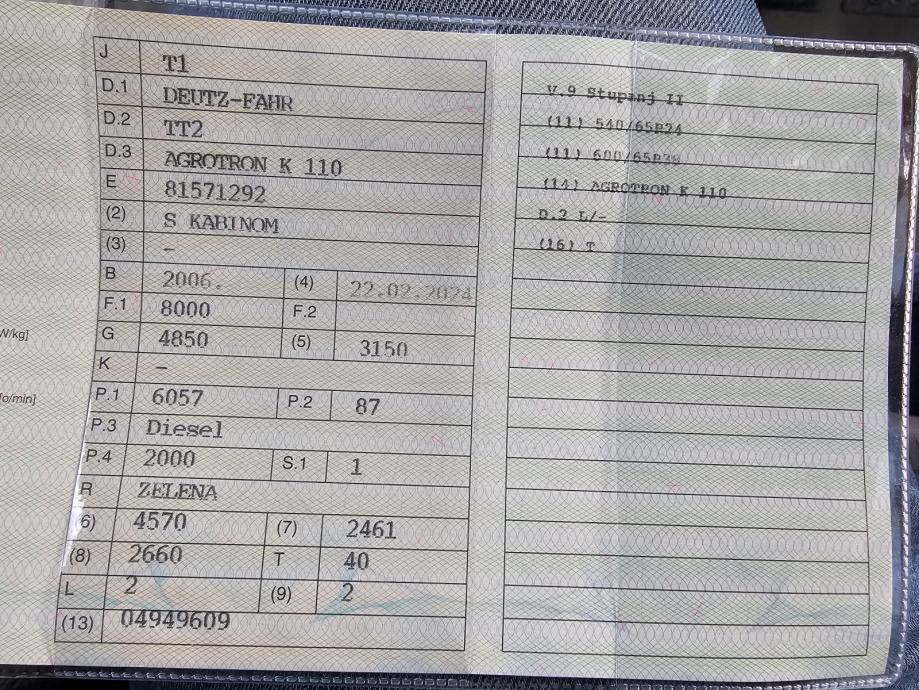 W/kg]
o/min]
J T1
D.1 DEUTZ-FAHR
D.2 TT2
D.3 AGROTRON K 110
E 81571292
(2) S KABINOM
(3) -
B 2006. (4) 22.02.2024
F.1 8000 F.2
G 4850 (5) 3150
K -
P.1 6057 P.2 87
P.3 Diesel
P.4 2000 S.1 1
R ZELENA
(6) 4570 (7) 2461
(8) 2660 T 40
L 2 (9) 2
(13) 04949609
V.9 Stupanj II
(11) 540/65R24
(11) 600/65R38
(14) AGROTRON K 110
D.2 L/-
(16) T